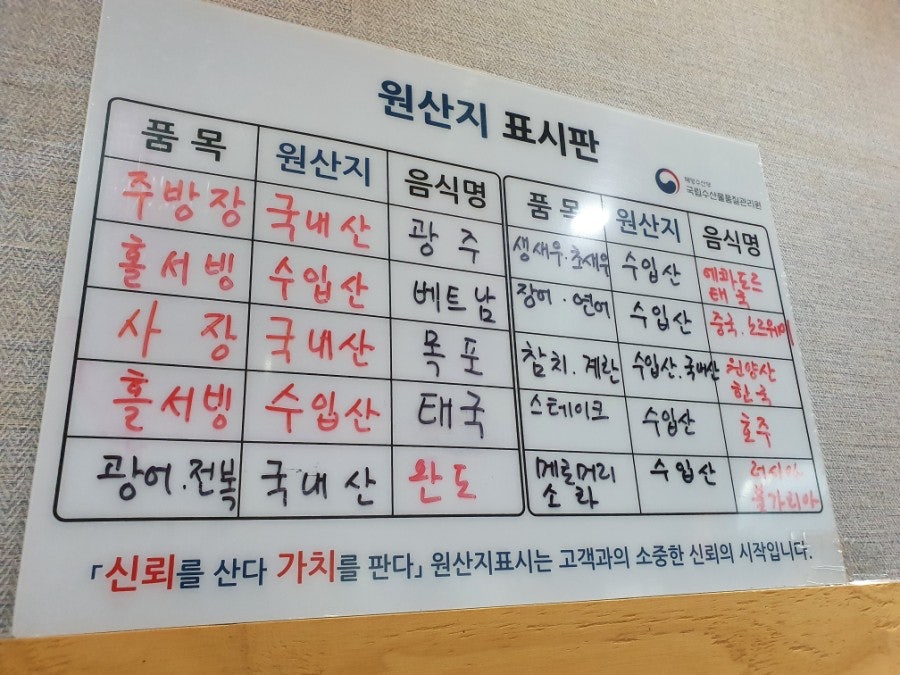 원산지 표시판
해양수산부
국립수산물품질관리원
품목 원산지 음식명
주방장 국내산 광주
홀서빙 수입산 베트남
사장 국내산 목포
홀서빙 수입산 태국
광어.전복 국내산 완도
품목 원산지 음식명
생새우.초새우 수입산 에콰도르
태국
장어.연어 수입산 중국.노르웨이
참치.계란 수입산.국내산 원양산
한국
스테이크 수입산 호주
메로머리 수입산 러시아
소라 불가리아
「신뢰를 산다 가치를 판다」 원산지표시는 고객과의 소중한 신뢰의 시작입니다.